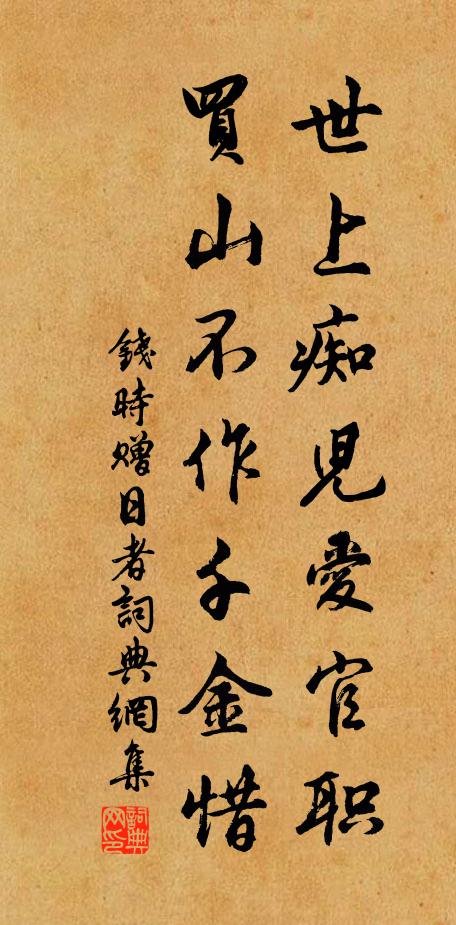 世上痴児愛官职
買山不作千金惜
錢時贈日者詞典網集
詞典
网印